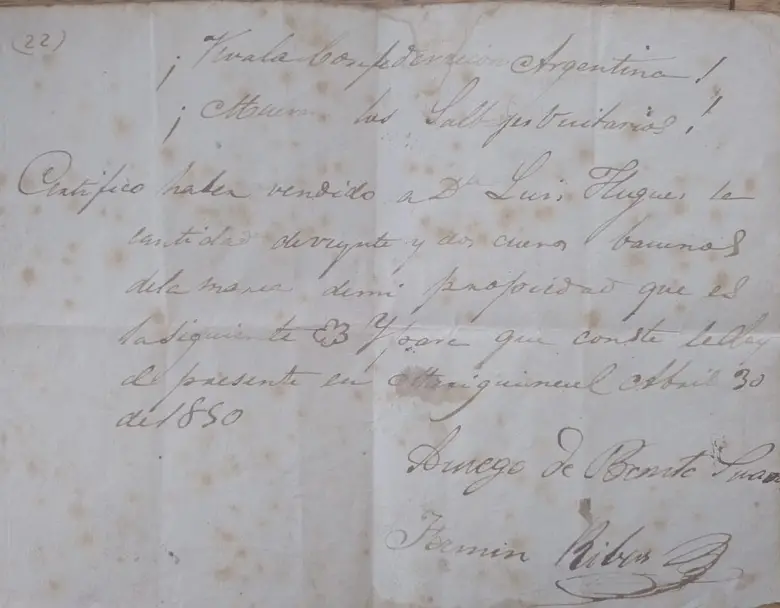 (22)
¡Viva la Confederacion Argentina!
¡Mueran los Salbages Unitarios!
Certifico haber vendido a Dn Luis Hugues la
cantidad de veynte y dos cueros bacunos
de la marca de mi propiedad que es
la siguiente Y para que conste le doy
el presente en Abril 30
de 1850
A ruego de Benito Suare
Fermin Ribas